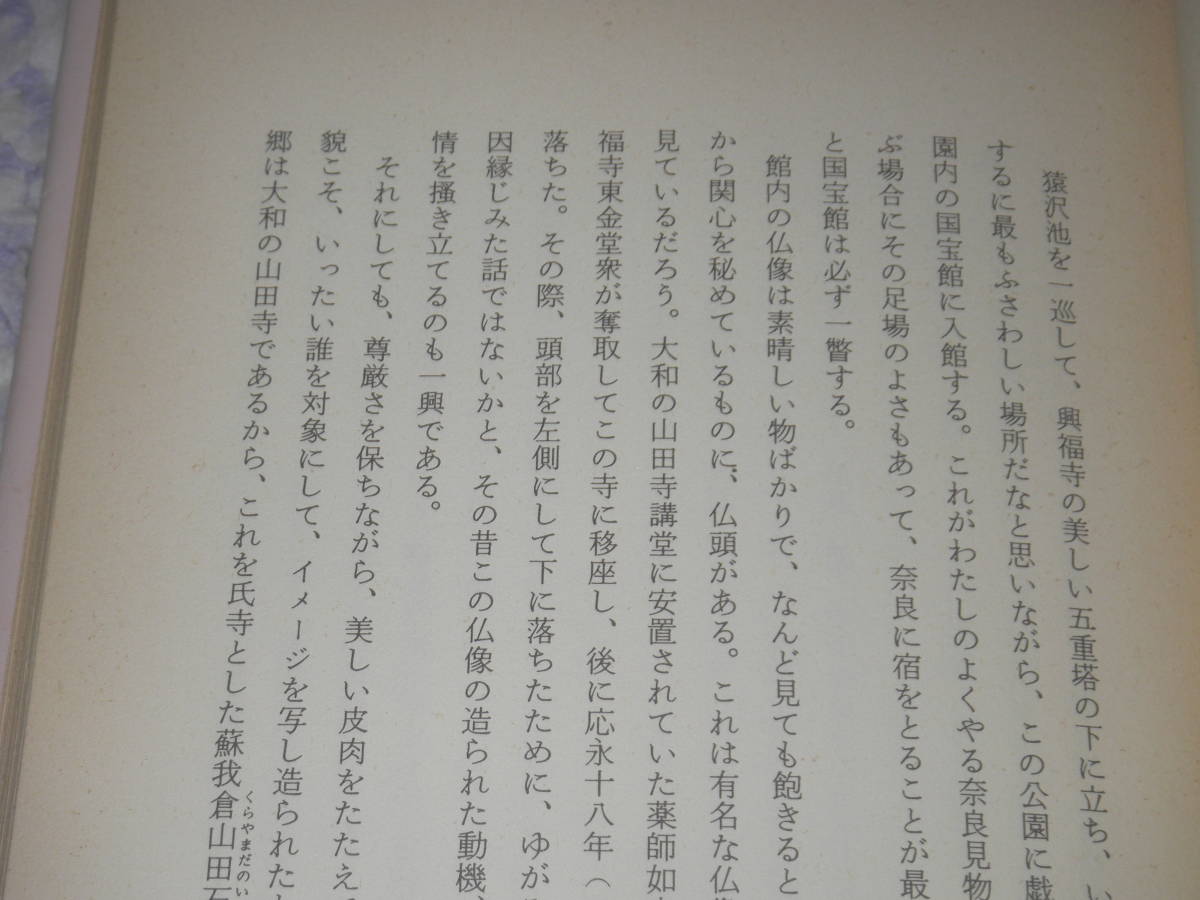 猿沢池を一巡して、興福寺の美しい五重塔の下に立ち、い
するに最もふさわしい場所だなと思いながら、この公園に戯
園内の国宝館に入館する。これがわたしのよくやる奈良見物
ぶ場合にその足場のよさもあって、奈良に宿をとることが最
と国宝館は必ず一瞥する。
館内の仏像は素晴しい物ばかりで、なんど見ても飽きると
から関心を秘めているものに、仏頭がある。これは有名な仏
見ているだろう。大和の山田寺講堂に安置されていた薬師如
福寺東金堂衆が奪取してこの寺に移座し、後に応永十八年（
落ちた。その際、頭部を左側にして下に落ちたために、ゆが
因縁じみた話ではないかと、その昔この仏像の造られた動機、
情を掻き立てるのも一興である。
それにしても、尊厳さを保ちながら、美しい皮肉をたたえ
貌こそ、いったい誰を対象にして、イメージを写し造られた
郷は大和の山田寺であるから、これを氏寺とした蘇我倉山田石
くらやまだのい